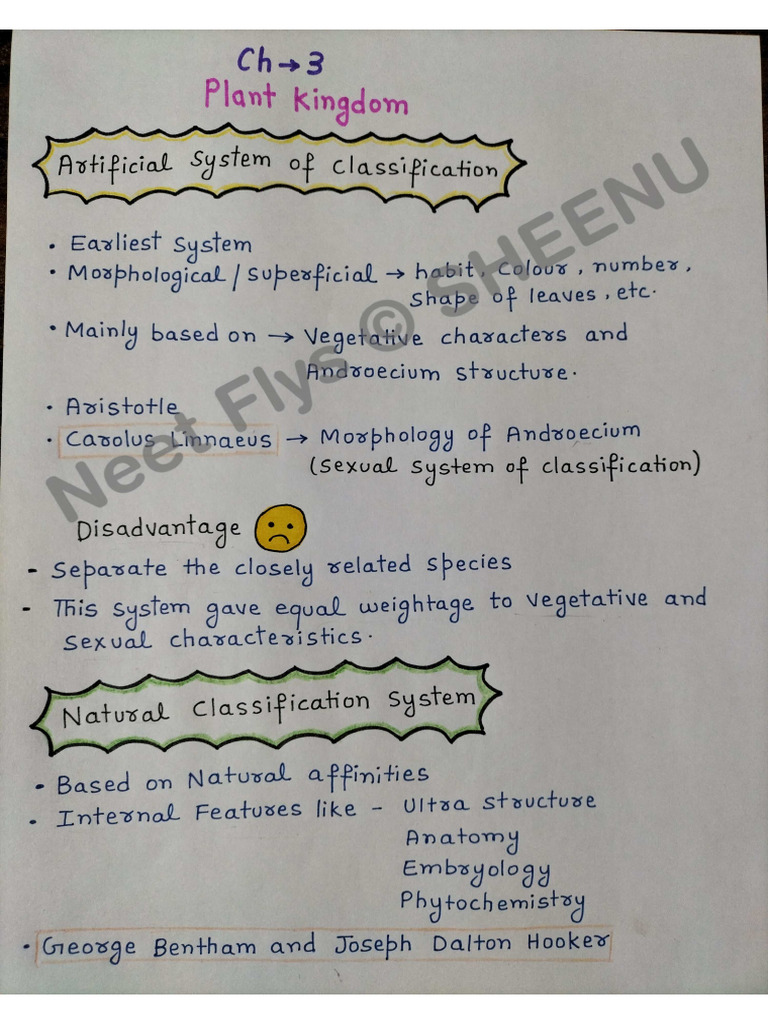 Ch → 3
Plant Kingdom
Artificial System of Classification
• Earliest System
• Morphological / Superficial → habit, Colour, number,
Shape of leaves, etc.
• Mainly based on → Vegetative characters and
Androecium structure.
• Aristotle
• Carolus Linnaeus → Morphology of Androecium
(Sexual System of classification)
Disadvantage
- Separate the closely related species
- This system gave equal weightage to vegetative and
sexual characteristics.
Natural Classification System
• Based on Natural affinities
• Internal Features like - Ultra structure
Anatomy
Embryology
Phytochemistry
• George Bentham and Joseph Dalton Hooker
Neet Flys © SHEENU